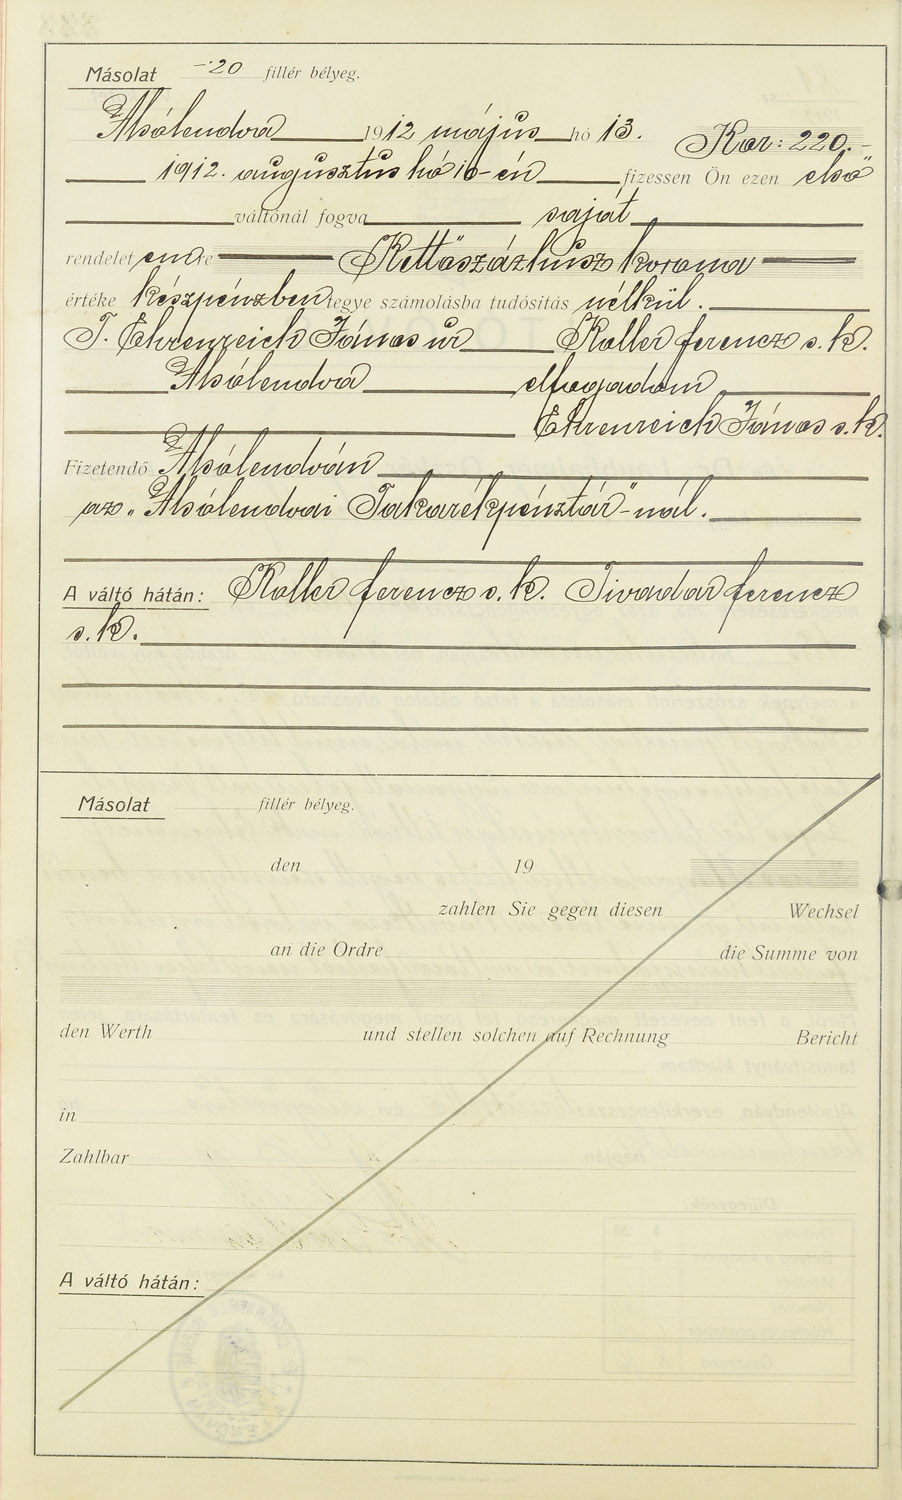 Másolat -·20 fillér bélyeg.
Alsólendva 1912 május hó 13. Kor: 220.-
1912. augusztus hó 10-én fizessen Ön ezen első
váltónál fogva saját
rendeletemre Kettőszázhúsz korona
értéke készpénzben tegye számolásba tudósítás nélkül.
T. Ehrenreich János úr Koller ferencz s. k.
Alsólendva elfogadom
Ehrenreich János s. k.
Fizetendő Alsólendván
az „Alsólendvai Takarékpénztár"-nál.
A váltó hátán: Koller ferencz s. k. Tivadar ferencz
s. k.
Másolat fillér bélyeg.
den 19
zahlen Sie gegen diesen Wechsel
an die Ordre die Summe von
den Werth und stellen solchen auf Rechnung Bericht
in
Zahlbar
A váltó hátán: